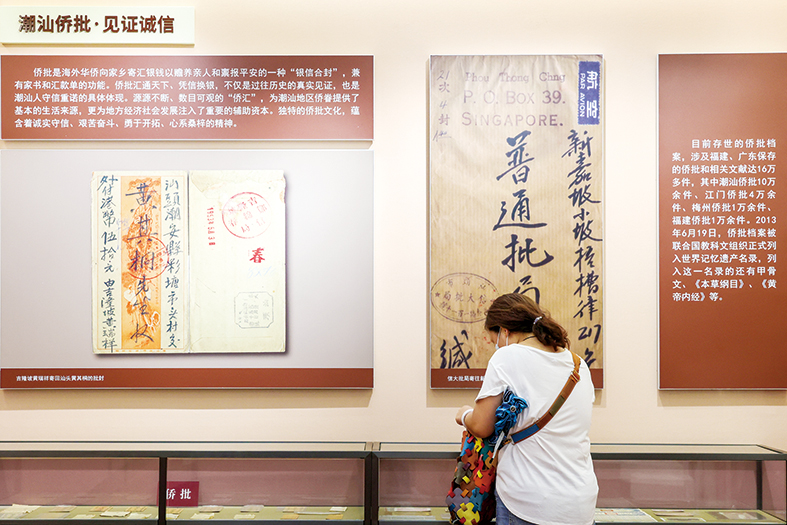 潮汕侨批·见证诚信
侨批是海外华侨向家乡寄汇银钱以赡养亲人和禀报平安的一种“银信合封”，兼
有家书和汇款单的功能。侨批汇通天下、凭信换银，不仅是过往历史的真实见证，也是
潮汕人守信重诺的具体体现。源源不断、数目可观的“侨汇”，为潮汕地区侨眷提供了
基本的生活来源，更为地方经济社会发展注入了重要的辅助资本。独特的侨批文化，蕴
含着诚实守信、艰苦奋斗、勇于开拓、心系桑梓的精神。
汕頭潮安縣彩塘市头村交
黄其桐先生收
外付港幣伍拾元 由吉隆坡黄瑞祥
春
吉隆坡黄瑞祥寄回汕头黄其桐的批封
Phou Thong Chng
P. O. BOX 39.
SINGAPORE.
PAR AVION
新嘉坡小坡梧槽律217
普通批局
缄
信大批局寄往
目前存世的侨批档
案，涉及福建、广东保存
的侨批和相关文献达16万
多件，其中潮汕侨批10万
余件、江门侨批4万余
件、梅州侨批1万余件、
福建侨批1万余件。2013
年6月19日，侨批档案被
联合国教科文组织正式列
入世界记忆遗产名录，列
入这一名录的还有甲骨
文、《本草纲目》、《黄
帝内经》等。
侨批